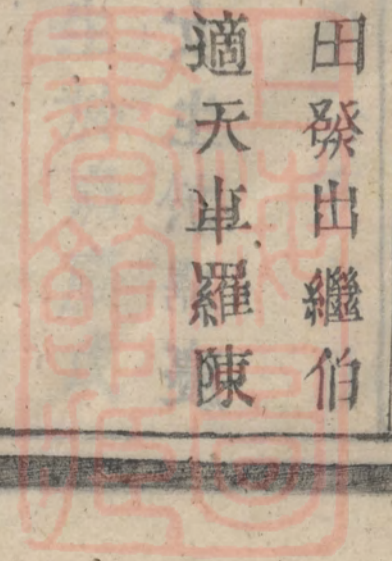 田發出繼伯
適天車羅陳